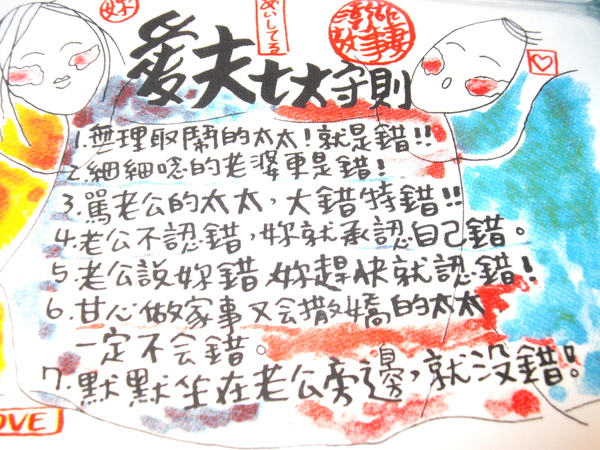 あいしてる
澎湖
故事妻
愛夫七大守則
1.無理取鬧的太太!就是錯!!
2.細細唸的老婆更是錯!
3.罵老公的太太,大錯特錯!!
4.老公不認錯,妳就承認自己錯。
5.老公說妳錯,妳趕快就認錯!
6.甘心做家事又会撒嬌的太太
一定不会錯。
7.默默坐在老公旁邊,就没錯!
OVE